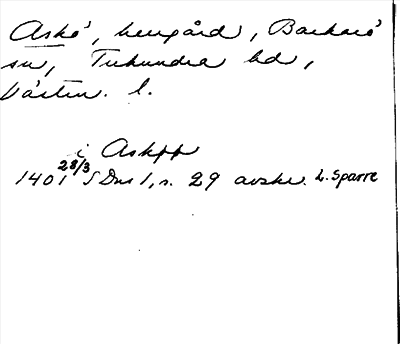 Askö, herrgård, Barkarö
sn, Tuhundra hd,
Västm. l.
i Askøø
1401 28/3 SDns 1, s. 29 avskr. L. Sparre